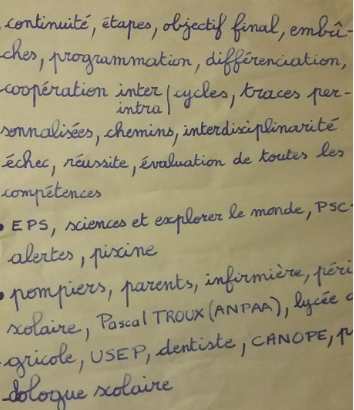 continuité, étapes, objectif final, embû-
ches, programmation, différenciation,
coopération inter/cycles, traces per-
intra
sonnalisées, chemins, interdisciplinarité
échec, réussite, évaluation de toutes les
compétences
• EPS, sciences et explorer le monde, PSC
alertes, piscine
• pompiers, parents, infirmière, péri
scolaire, Pascal TROUX (ANPAA), lycée a
gricole, USEP, dentiste, CANOPE, p
dologue scolaire